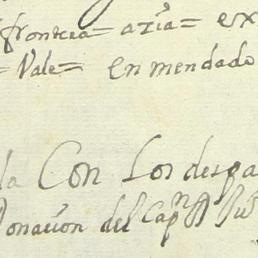 frontera = azia = ex
= Vale = enmendado
la Con Los despa
Donacion del Capn